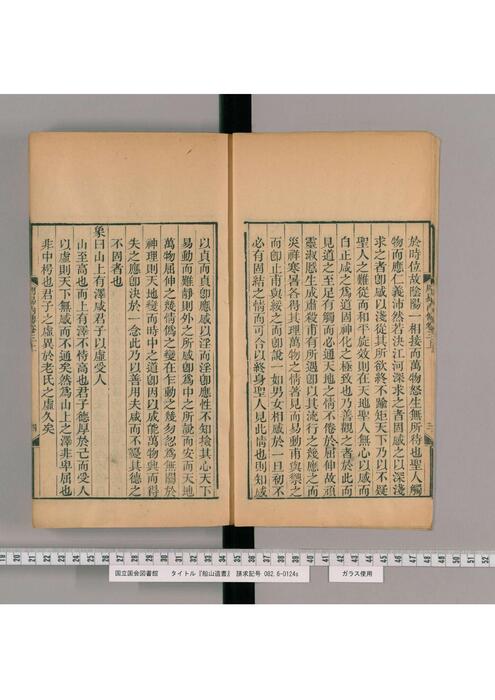 於時位故陰陽一相接而萬物怒生無所待也聖人觸
物而應仁義沛然若決江河深求之者固感之以深淺
求之者卽感以淺從其所欲終不踰矩天下乃以不疑
聖人之難從而和平旋效則在天地聖人無心以感而
自正咸之爲道固神化之極致也乃善觀之者於此而
見道之至足有觸而必通天地之情不倦於屈伸故頑
靈淑慝生成肅殺甫有所遇卽以其流行之幾應之而
災祥寒暑各得其理萬物之情著見而易動甫與禦之
而卽止甫與綏之而卽說一如男女相感於一旦初不
必有固結之情而可合以終身聖人見此情也則知感
以貞而貞卽應感以淫而淫卽應性不知撿其心天下
易動而難靜則外之所感卽爲中之所說而安而天地
萬物屈伸之幾情僞之變在乍動之幾勿忽爲無關於
神理則天地變而時中之道卽因以咸能萬物與而得
失之應卽決於一念此乃以善用夫咸而不憂其德之
不固者也
象曰山上有澤咸君子以虛受人
山至高也而上有澤不恃高也君子德厚於己而受人
以虛則天下無感而不通矣然爲山上之澤非卑屈也
非中枵也君子之虛異於老氏之虛久矣
國立国会図書館 タイトル『船山遺書』 請求記号 082.6-0124s
ガラス使用